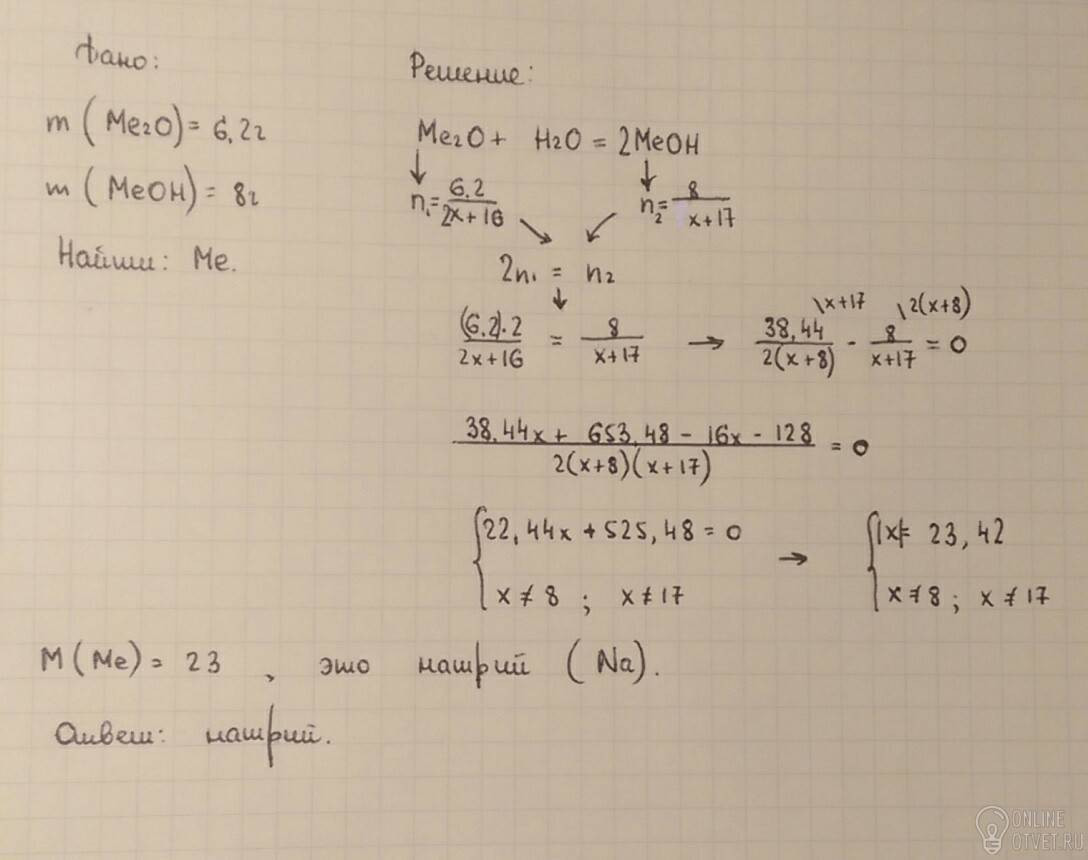 Дано:
m (Me2O) = 6,2г
m (MeOH) = 8г
Найти: Me.
Решение:
Me2O + H2O = 2MeOH
n₁ = 6.2 / 2x+16
n₂ = 8 / x+17
2n₁ = n₂
(6.2)·2 / 2x+16 = 8 / x+17 → 38,44 / 2(x+8) \x+17 - 8 / x+17 \2(x+8) = 0
38,44x + 653,48 - 16x - 128 / 2(x+8)(x+17) = 0
{ 22,44x + 525,48 = 0 → { |x|= 23,42
x ≠ 8 ; x ≠ 17 x ≠ 8 ; x ≠ 17
M (Me) = 23 , это натрий (Na).
Ответ: натрий.
ONLINE
OTVET.RU